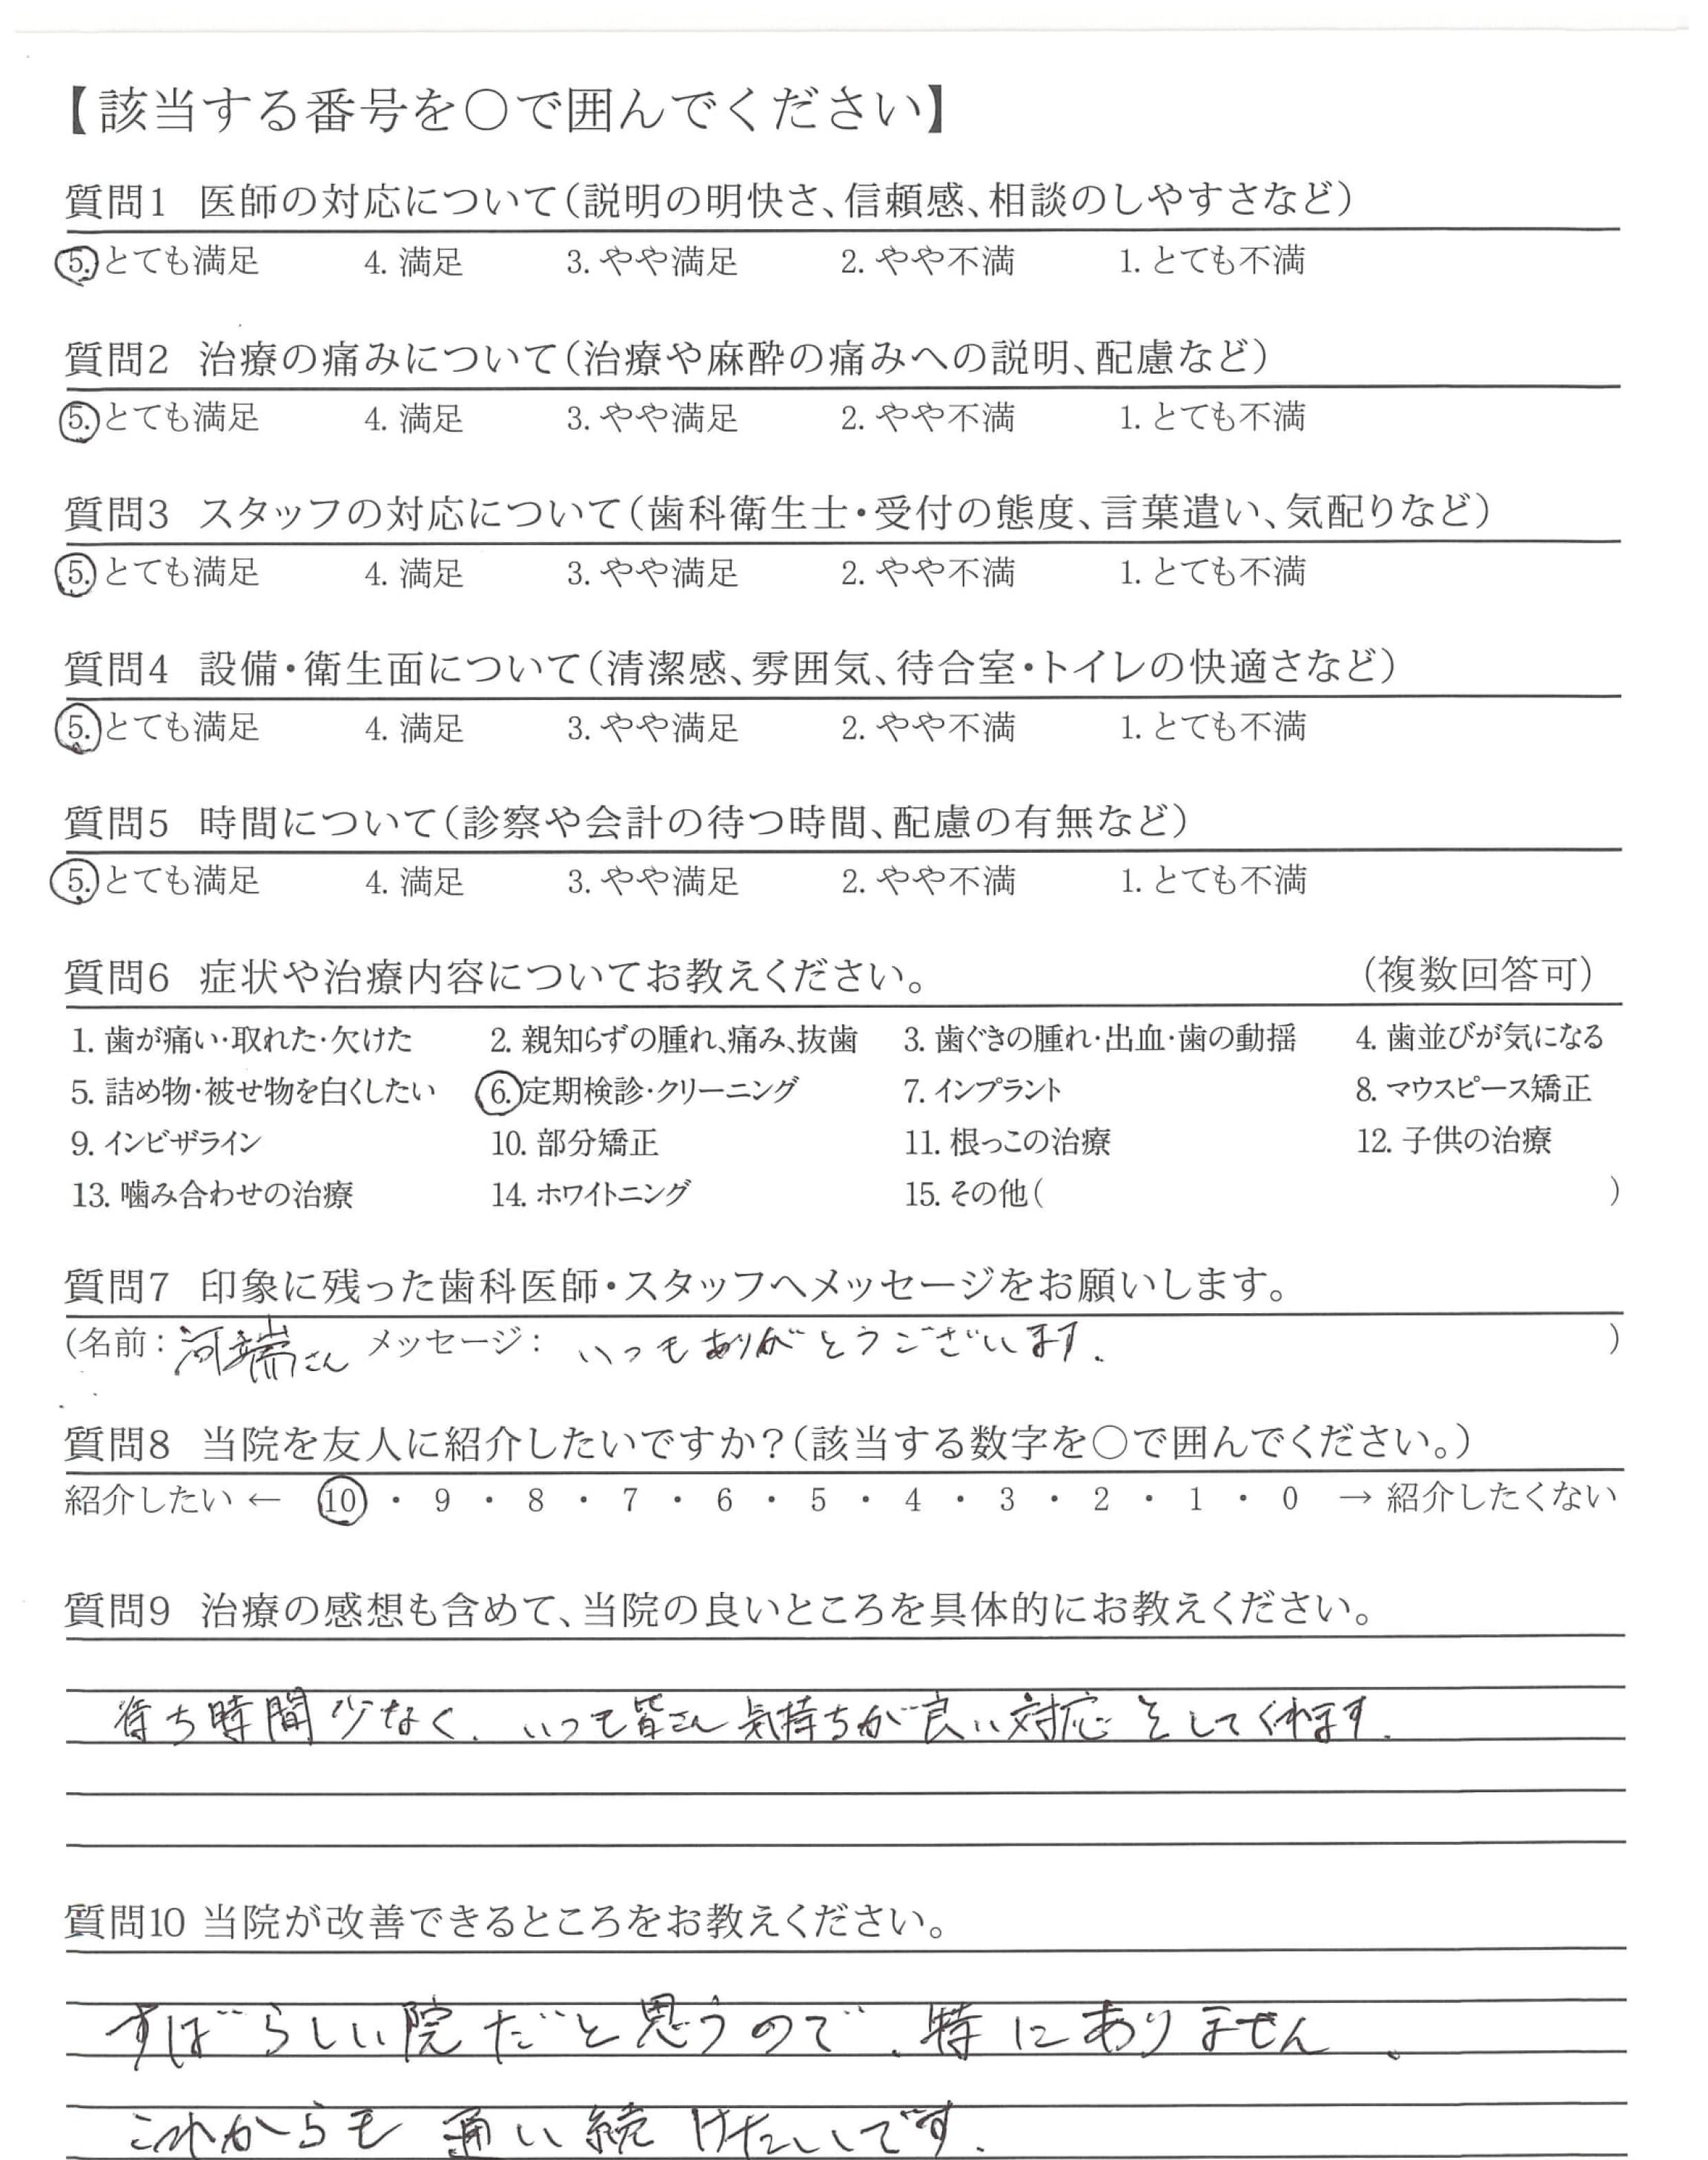 【該当する番号を○で囲んでください】
質問1 医師の対応について(説明の明快さ、信頼感、相談のしやすさなど)
5. とても満足 4. 満足 3. やや満足 2. やや不満 1. とても不満
質問2 治療の痛みについて(治療や麻酔の痛みへの説明、配慮など)
5. とても満足 4. 満足 3. やや満足 2. やや不満 1. とても不満
質問3 スタッフの対応について(歯科衛生士・受付の態度、言葉遣い、気配りなど)
5. とても満足 4. 満足 3. やや満足 2. やや不満 1. とても不満
質問4 設備・衛生面について(清潔感、雰囲気、待合室・トイレの快適さなど)
5. とても満足 4. 満足 3. やや満足 2. やや不満 1. とても不満
質問5 時間について(診察や会計の待つ時間、配慮の有無など)
5. とても満足 4. 満足 3. やや満足 2. やや不満 1. とても不満
質問6 症状や治療内容についてお教えください。 (複数回答可)
1. 歯が痛い・取れた・欠けた 2. 親知らずの腫れ、痛み、抜歯 3. 歯ぐきの腫れ・出血・歯の動揺 4. 歯並びが気になる
5. 詰め物・被せ物を白くしたい 6. 定期検診・クリーニング 7. インプラント 8. マウスピース矯正
9. インビザライン 10. 部分矯正 11. 根っこの治療 12. 子供の治療
13. 噛み合わせの治療 14. ホワイトニング 15. その他( )
質問7 印象に残った歯科医師・スタッフへメッセージをお願いします。
(名前：河端さん メッセージ： いつもありがとうございます. )
質問8 当院を友人に紹介したいですか？(該当する数字を○で囲んでください。)
紹介したい ← 10 ・ 9 ・ 8 ・ 7 ・ 6 ・ 5 ・ 4 ・ 3 ・ 2 ・ 1 ・ 0 → 紹介したくない
質問9 治療の感想も含めて、当院の良いところを具体的にお教えください。
待ち時間少なく、いつも皆さん気持ちが良い対応をしてくれます.
質問10 当院が改善できるところをお教えください。
すばらしい院だと思うので、特にありません、
これからも通い続けたいです.